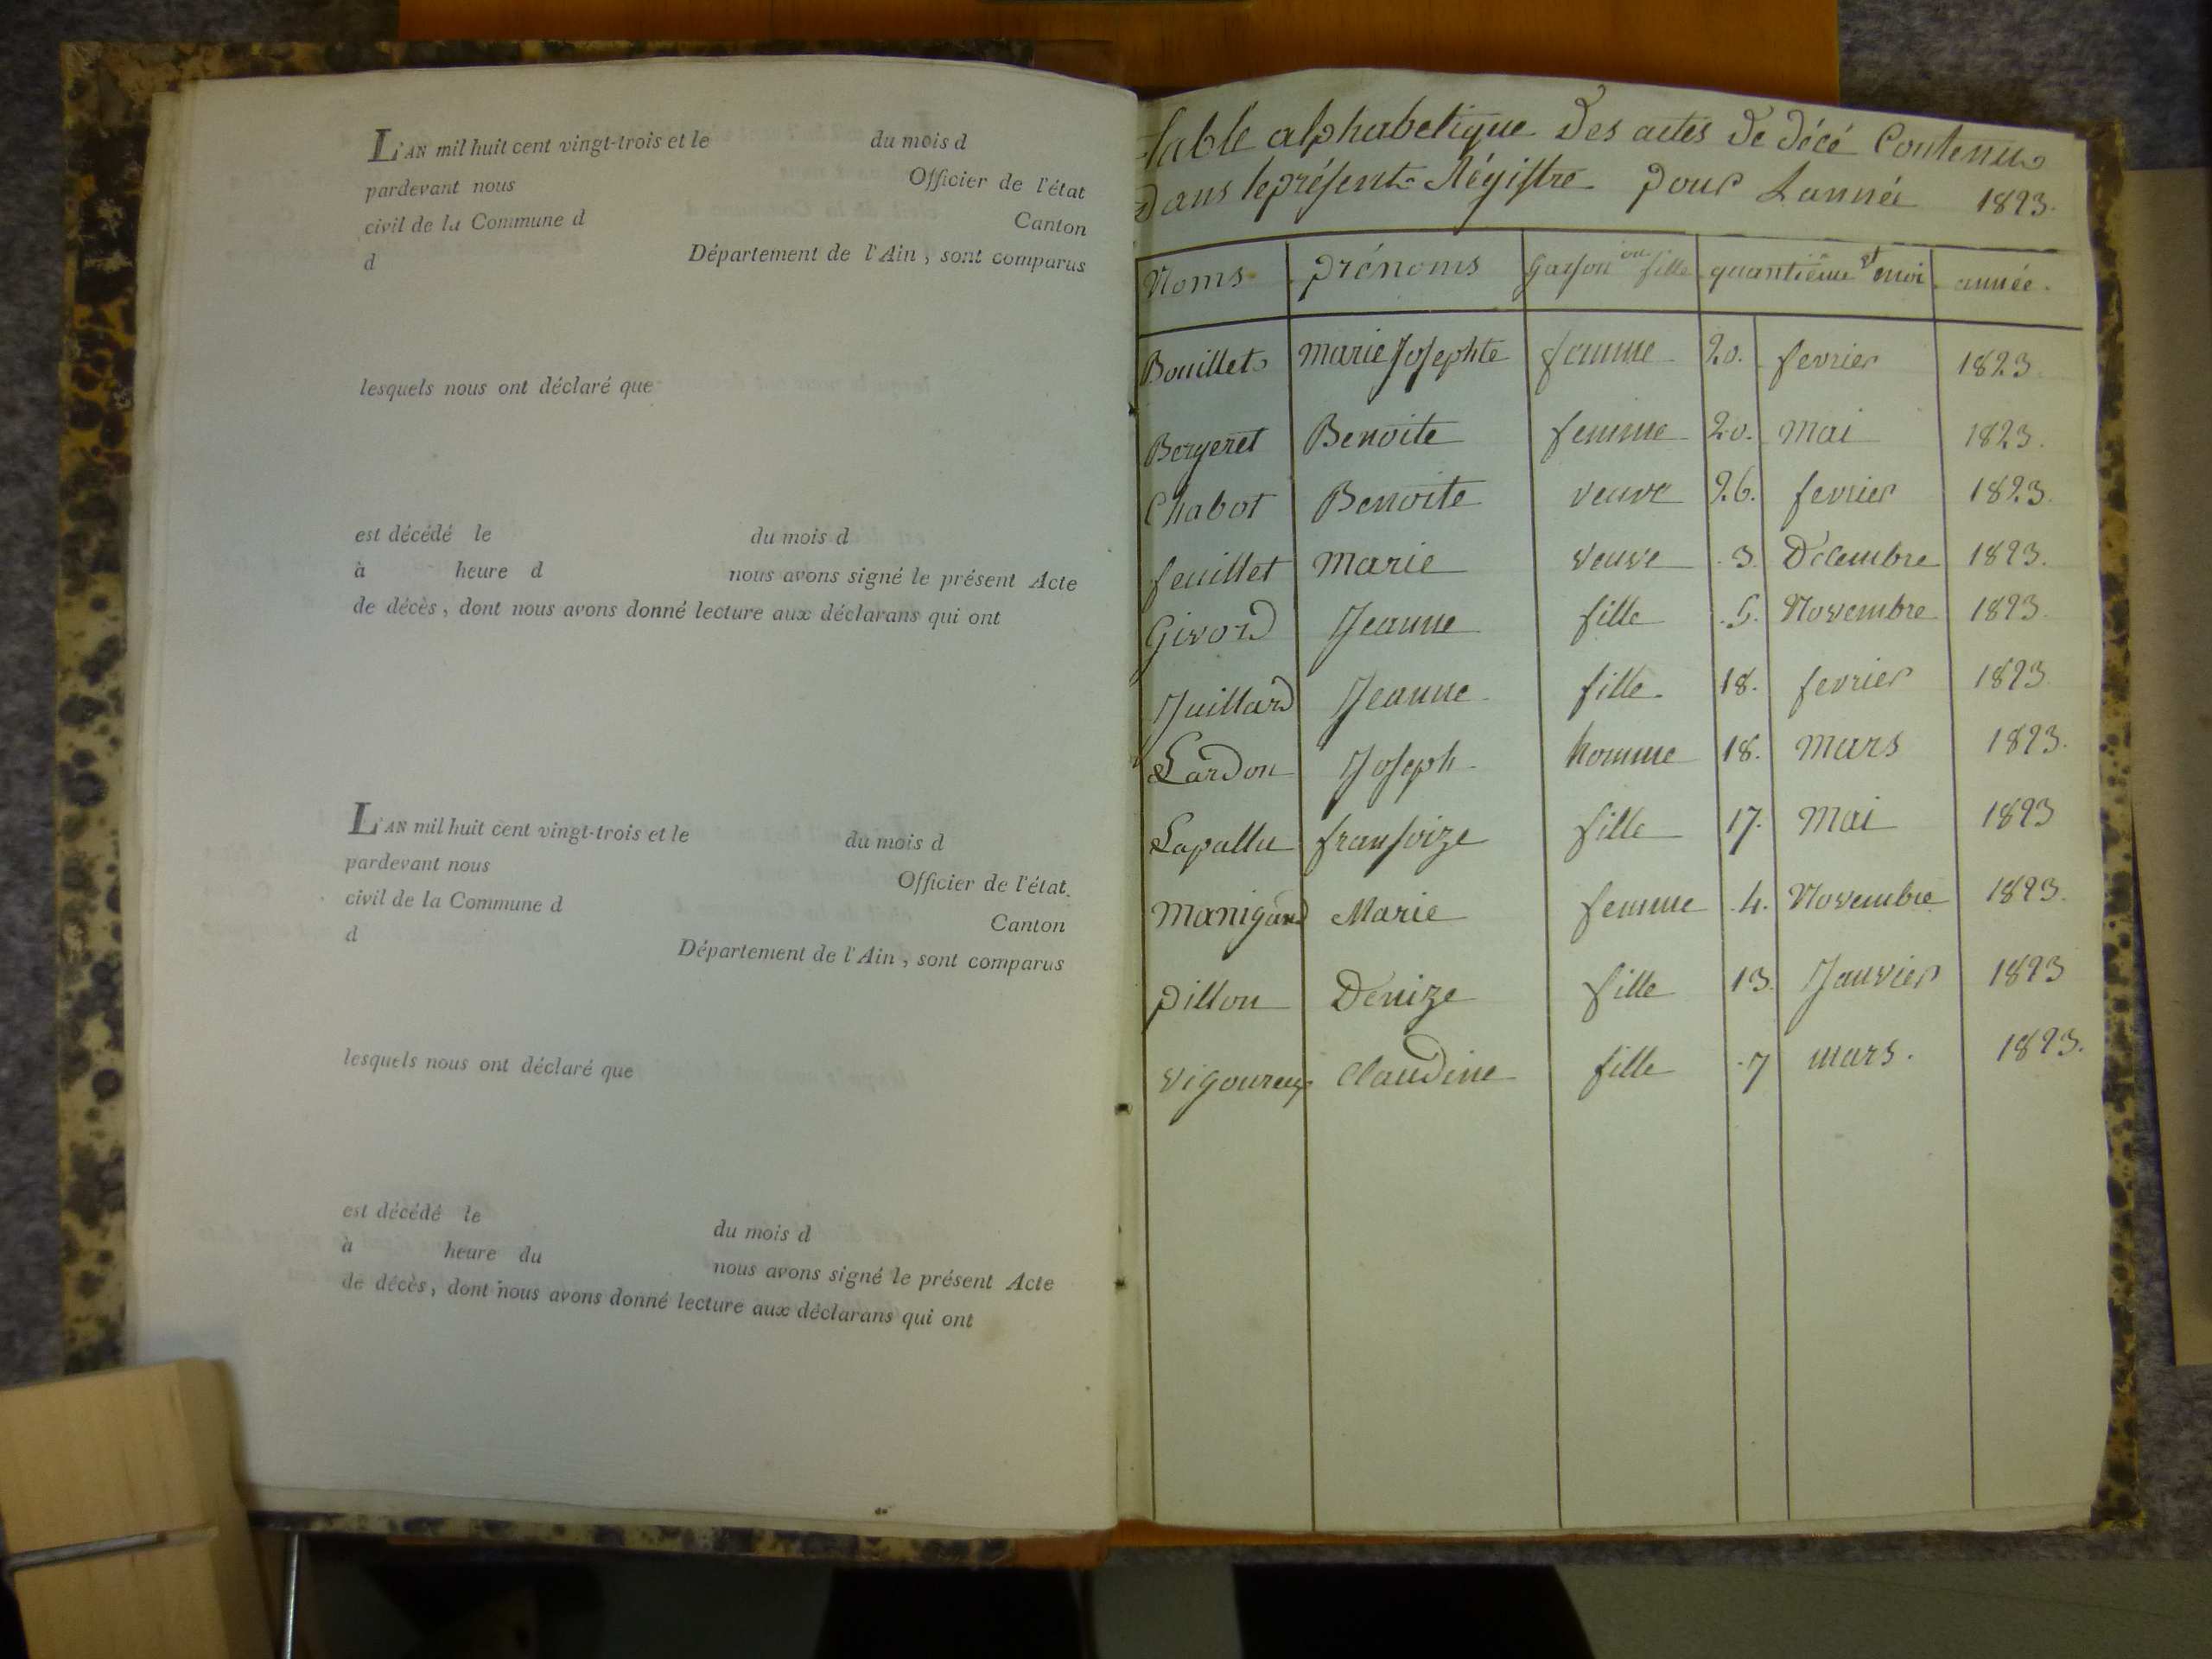 L'AN mil huit cent vingt-trois et le du mois d
pardevant nous Officier de l'état
civil de la Commune d Canton
d Département de l'Ain, sont comparus
lesquels nous ont déclaré que
est décédé le du mois d
à heure d nous avons signé le présent Acte
de décès, dont nous avons donné lecture aux déclarans qui ont
L'AN mil huit cent vingt-trois et le du mois d
pardevant nous Officier de l'état
civil de la Commune d Canton
d Département de l'Ain, sont comparus
lesquels nous ont déclaré que
est décédé le du mois d
à heure du nous avons signé le présent Acte
de décès, dont nous avons donné lecture aux déclarans qui ont
table alphabetique Des actes De Décé Contenus
Dans le présent Régistre pour L'année 1823.
Noms prénoms garson ou fille quantiême et moi année.
Bouillet Marie Josephte femme 20. fevrier 1823.
Bergeret Benoite femme 20. Mai 1823.
Chabot Benoite veuve 26. fevrier 1823.
feuillet Marie veuve 3. Décembre 1823.
Givord Jeanne fille 5. Novembre 1823.
Juillard Jeanne fille 18. fevrier 1823
Lardon Joseph homme 18. Mars 1823.
Lapallu fransoize fille 17. Mai 1823
Manigand Marie femme 4. Novembre 1823.
pillon Denize fille 13. Janvier 1823
Vigoureux Claudine fille 7 mars. 1823.